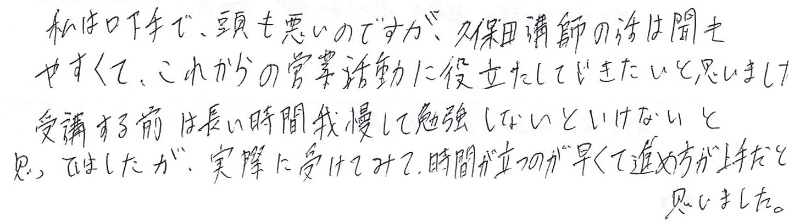 私は口下手で、頭も悪いのですが、久保田講師の話は聞き
やすくて、これからの営業活動に役立たしていきたいと思いました
受講する前は長い時間我慢して勉強しないといけないと
思ってましたが、実際に受けてみて、時間が立つのが早くて進め方が上手だと
思いました。